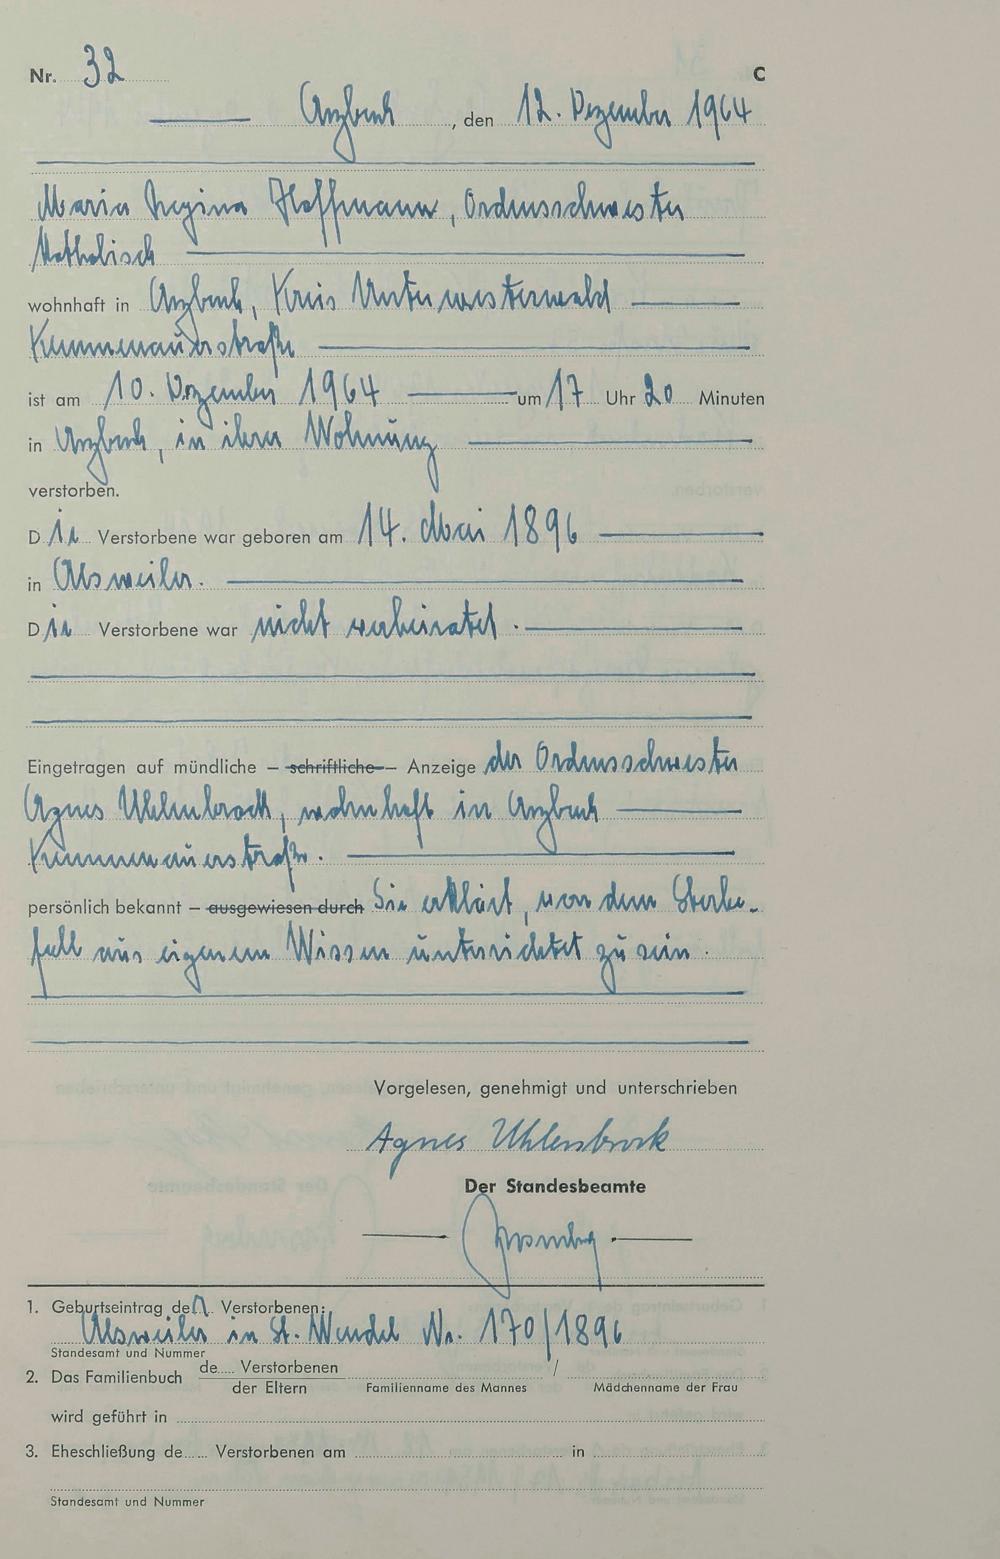 Nr. 32 C
Arzbach, den 12. Dezember 1964
Maria Regina Hoffmann, Ordensschwester
Katholisch
wohnhaft in Arzbach, Kreis Unterwesterwald
Kemmenauerstraße
ist am 10. Dezember 1964 um 17 Uhr 20 Minuten
in Arzbach, in ihrer Wohnung
verstorben.
Die Verstorbene war geboren am 14. Mai 1896
in Alsweiler.
Die Verstorbene war nicht verheiratet.
Eingetragen auf mündliche – schriftliche – Anzeige der Ordensschwester
Agnes Uhlenbrock, wohnhaft in Arzbach
Kemmenauerstraße.
persönlich bekannt – ausgewiesen durch Sie erklärt, von dem Sterbe-
fall aus eigenem Wissen unterrichtet zu sein.
Vorgelesen, genehmigt und unterschrieben
Agnes Uhlenbrock
Der Standesbeamte
1. Geburtseintrag der Verstorbenen:
Alsweiler in St. Wendel Nr. 170/1896
Standesamt und Nummer
2. Das Familienbuch de..... Verstorbenen /
der Eltern Familienname des Mannes Mädchenname der Frau
wird geführt in
3. Eheschließung de..... Verstorbenen am in
Standesamt und Nummer